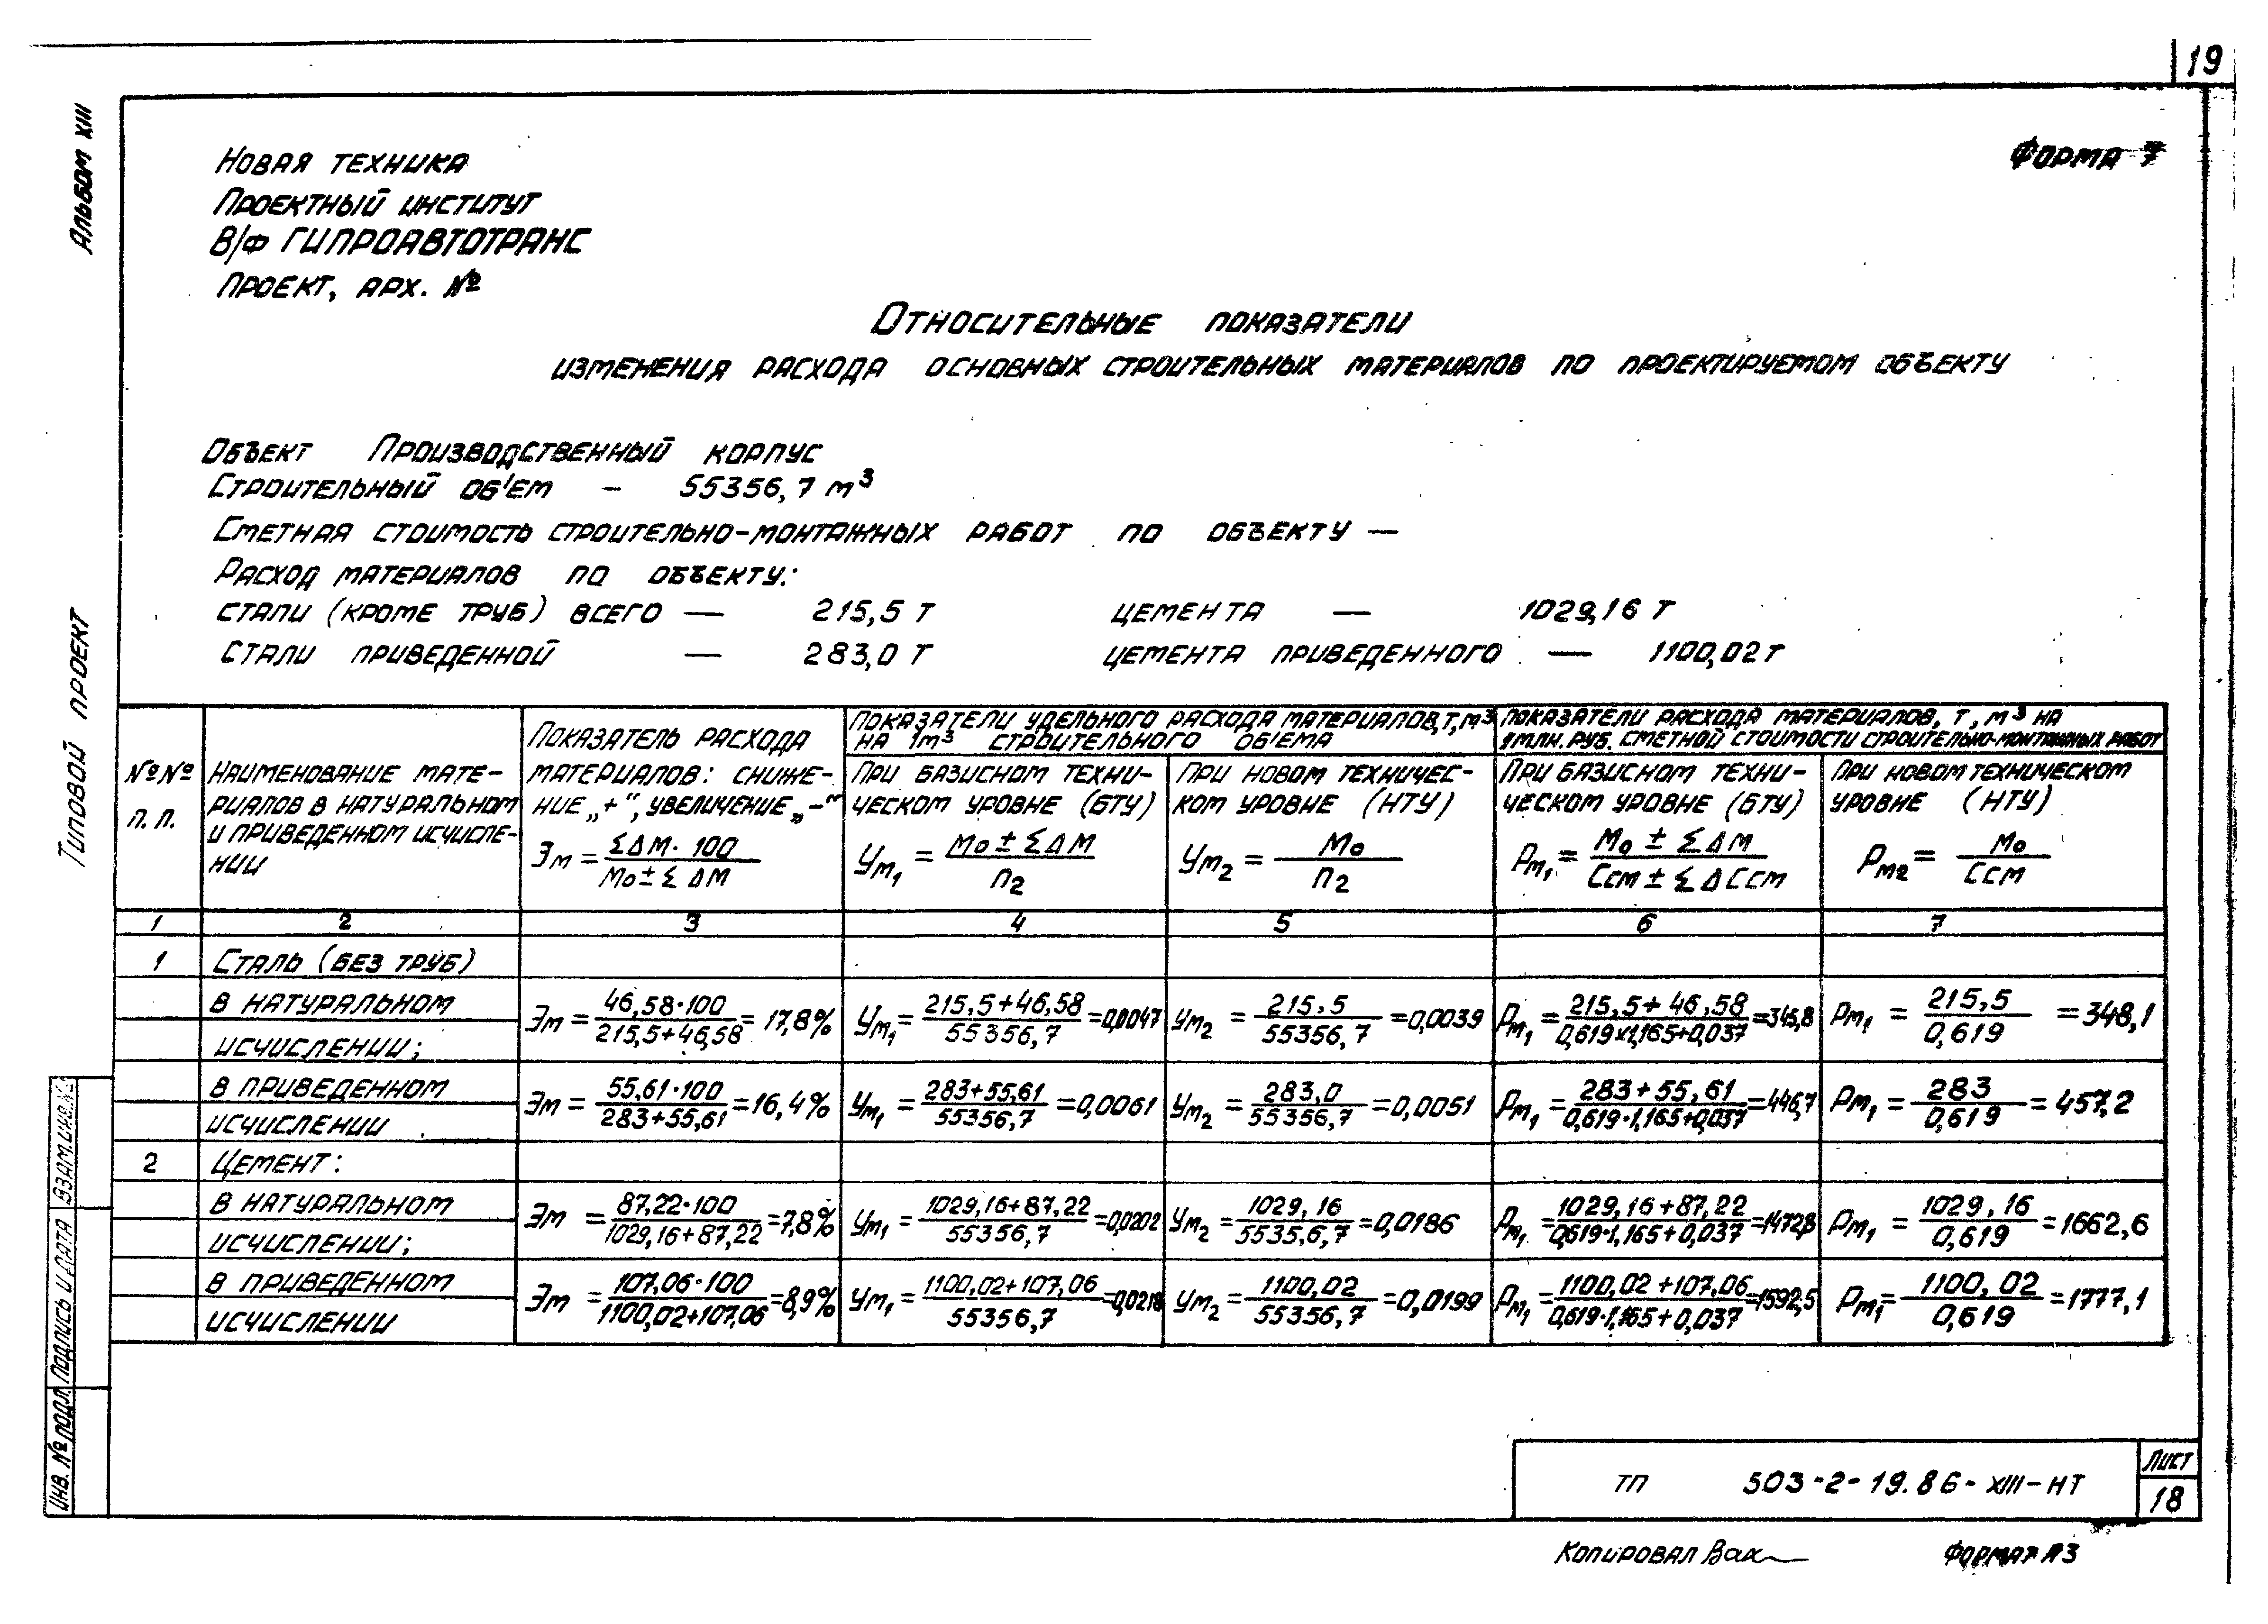 19
Альбом XIII
Форма 7
Новая техника
Проектный институт
В/ф ГИПРОАВТОТРАНС
Проект, арх. №
Относительные показатели
изменения расхода основных строительных материалов по проектируемом объекту
Объект Производственный корпус
Строительный об'ем – 55356,7 м³
Сметная стоимость строительно-монтажных работ по объекту —
Расход материалов по объекту:
стали (кроме труб) всего — 215,5 т цемента — 1029,16 т
Стали приведенной — 283,0 т цемента приведенного — 1100,02 т
Типовой проект
№№ п.п.
Наименование мате-
риалов в натуральном
и приведенном исчисле-
нии
Показатель расхода
материалов: сниже-
ние „+“, увеличение „-“
Эм = ΣΔМ·100 / Мо ± ΣΔМ
Показатели удельного расхода материалов, т, м³
на 1м³ строительного об'ема
При базисном техни-
ческом уровне (БТУ)
Ум₁ = Мо ± ΣΔМ / п₂
При новом техничес-
ком уровне (НТУ)
Ум₂ = Мо / п₂
Показатели расхода материалов, т, м³ на
1 млн. руб. сметной стоимости строительно-монтажных работ
При базисном техни-
ческом уровне (БТУ)
Рм₁ = Мо ± ΣΔМ / Ссм ± ΣΔСсм
При новом техническом
уровне (НТУ)
Рм₂ = Мо / Ссм
1 2 3 4 5 6 7
1 Сталь (без труб)
в натуральном
исчислении;
Эм = 46,58·100 / 215,5+46,58 = 17,8%
Ум₁ = 215,5+46,58 / 55356,7 = 0,0047
Ум₂ = 215,5 / 55356,7 = 0,0039
Рм₁ = 215,5+46,58 / 0,619×1,165+0,037 = 345,8
Рм₁ = 215,5 / 0,619 = 348,1
в приведенном
исчислении
Эм = 55,61·100 / 283+55,61 = 16,4%
Ум₁ = 283+55,61 / 55356,7 = 0,0061
Ум₂ = 283,0 / 55356,7 = 0,0051
Рм₁ = 283+55,61 / 0,619·1,165+0,037 = 446,7
Рм₁ = 283 / 0,619 = 457,2
2 Цемент:
в натуральном
исчислении;
Эм = 87,22·100 / 1029,16+87,22 = 7,8%
Ум₁ = 1029,16+87,22 / 55356,7 = 0,0202
Ум₂ = 1029,16 / 5535,6,7 = 0,0186
Рм₁ = 1029,16+87,22 / 0,619·1,165+0,037 = 1472,8
Рм₁ = 1029,16 / 0,619 = 1662,6
в приведенном
исчислении
Эм = 107,06·100 / 1100,02+107,06 = 8,9%
Ум₁ = 1100,02+107,06 / 55356,7 = 0,0218
Ум₂ = 1100,02 / 55356,7 = 0,0199
Рм₁ = 1100,02+107,06 / 0,619·1,165+0,037 = 1592,5
Рм₁ = 1100,02 / 0,619 = 1777,1
Взам.инв.№
Подпись и дата
Инв. № подл.
ТП 503-2-19.86-XIII-НТ
Лист
18
Копировал Вах
Формат А3